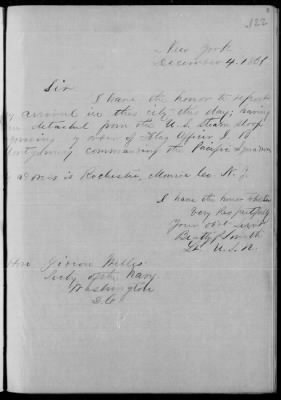 122
New York
December 4. 1861
Sir
I have the honor to report
my arrival in this city this day; having
been detached from the U. S. Steam Sloop
by order of Flag Officer J. B
Montgomery commanding the Pacific Squadron
My address is Rochester, Monroe Co N. Y.
I have the honor to be
Very Respectfully
Your obt servt
Smith
Lt U. S. N.
Hon Gideon Welles
Secty of the Navy
Washington
D. C.